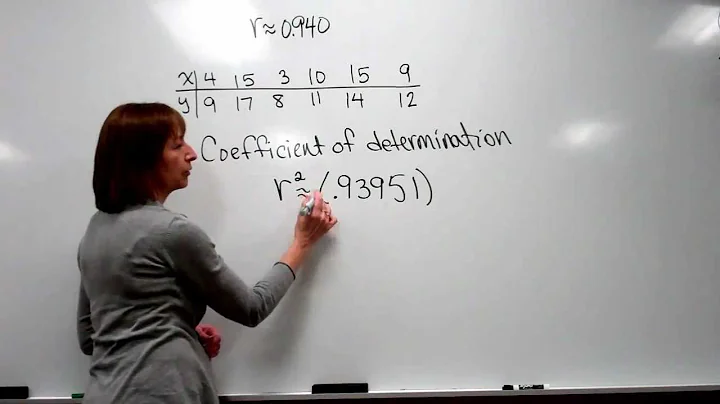 r≈0.940
x 4 15 3 10 15 9
y 9 17 8 11 14 12
Coefficient of determination
r²≈(.93951)